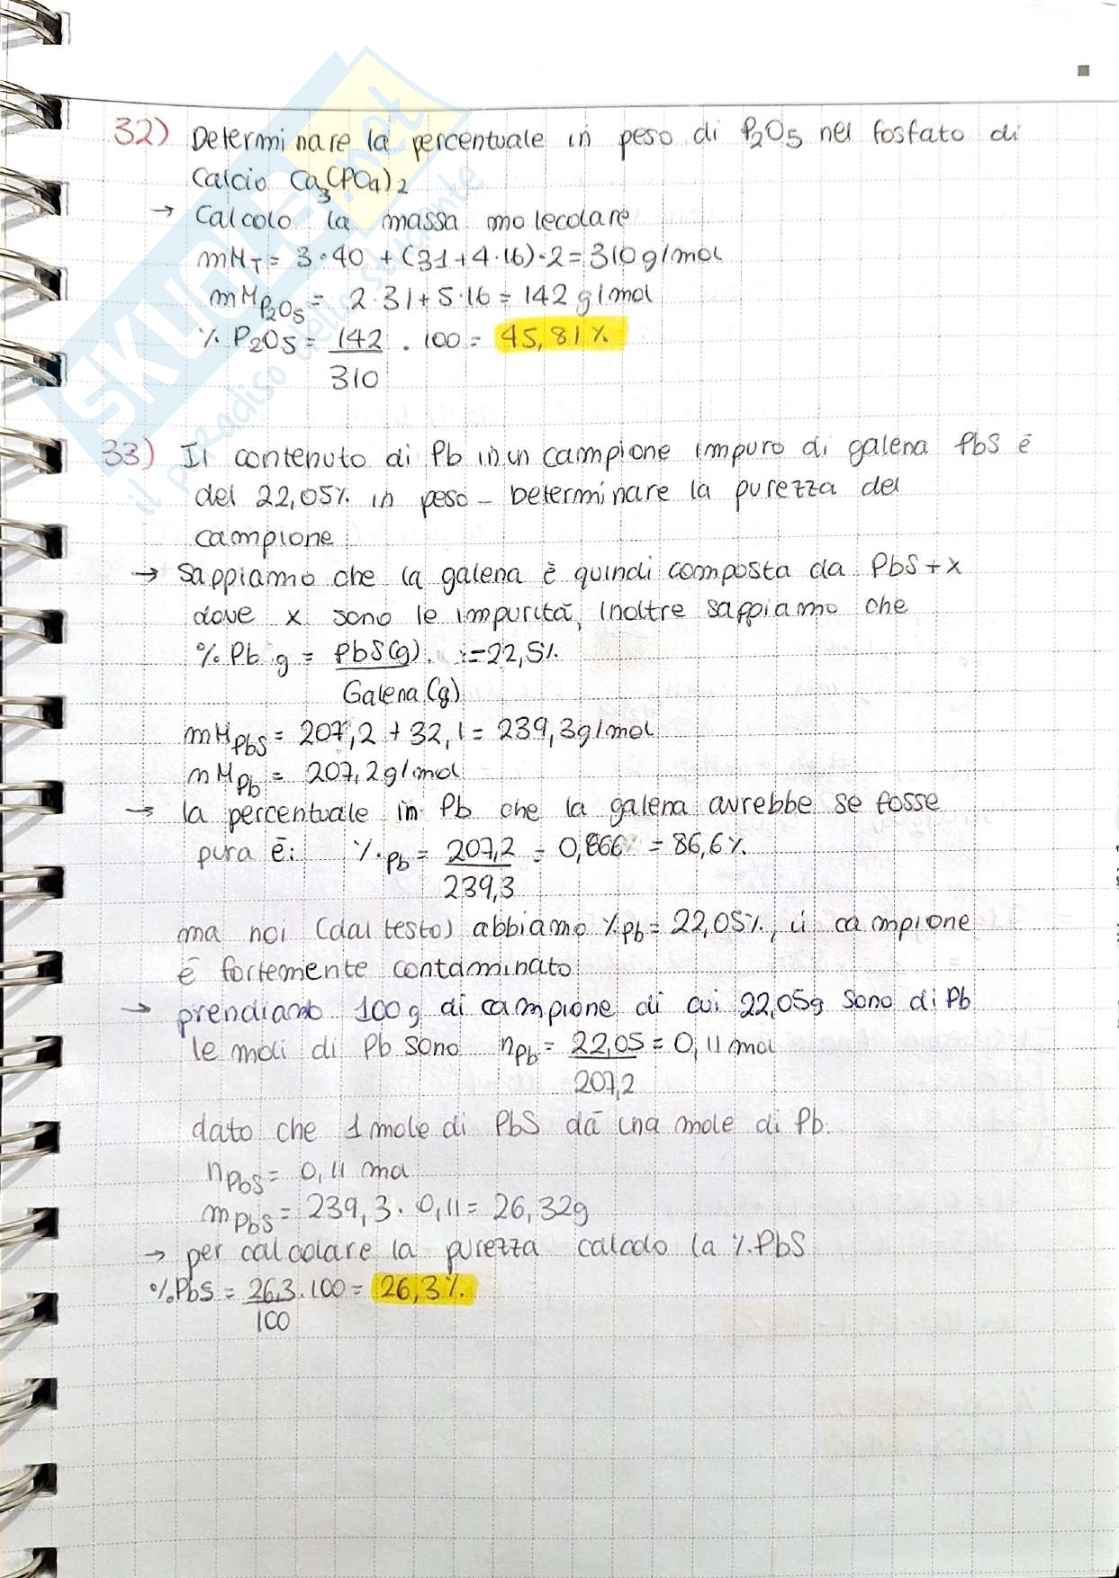 32) Determinare la percentuale in peso di P2O5 nel fosfato di
Calcio Ca3(PO4)2
→ Calcolo la massa molecolare
mMT = 3·40 + (31+4·16)·2 = 310 g/mol
mMP2O5 = 2·31+5·16 = 142 g/mol
% P2O5 = 142/310 · 100 = 45,81%
33) Il contenuto di Pb in un campione impuro di galena PbS è
del 22,05% in peso - Determinare la purezza del
campione
→ Sappiamo che la galena è quindi composta da PbS + x
dove x sono le impurità, inoltre sappiamo che
% Pb g = PbS(g)/Galena(g) = 22,5%
mMPbS = 207,2 + 32,1 = 239,3 g/mol
mMPb = 207,2 g/mol
→ la percentuale in Pb che la galena avrebbe se fosse
pura è: %Pb = 207,2/239,3 = 0,866 = 86,6%
ma noi (dal testo) abbiamo %Pb = 22,05%, il campione
è fortemente contaminato
→ prendiamo 100g di campione di cui 22,05g sono di Pb
le moli di Pb sono nPb = 22,05/207,2 = 0,11 mol
dato che 1 mole di PbS dà una mole di Pb.
nPbS = 0,11 mol
mPbS = 239,3 · 0,11 = 26,32g
→ per calcolare la purezza calcolo la %PbS
%PbS = 26,3/100 · 100 = 26,3%
SKUOLA.net
il paradiso dello studente